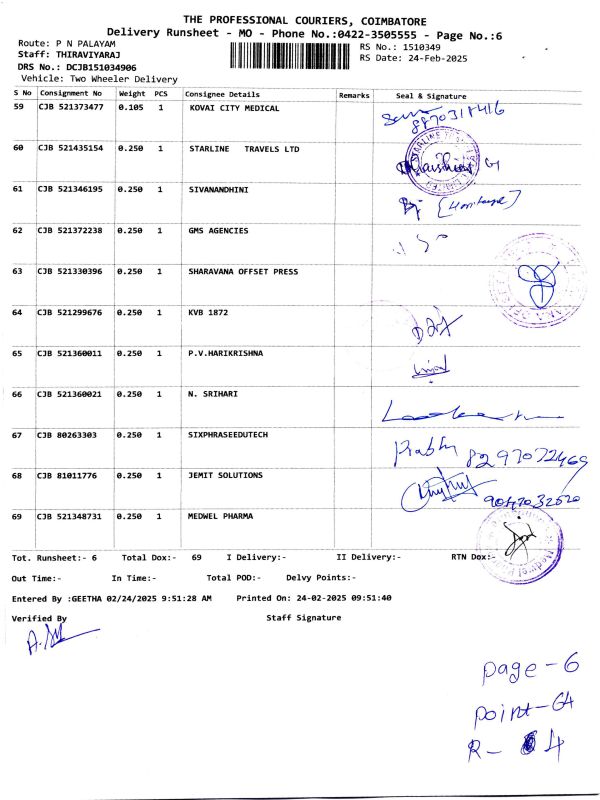 THE PROFESSIONAL COURIERS, COIMBATORE
Delivery Runsheet - MO - Phone No.:0422-3505555 - Page No.:6
Route: P N PALAYAM
RS No.: 1510349
Staff: THIRAVIYARAJ
RS Date: 24-Feb-2025
DRS No.: DCJB151034906
Vehicle: Two Wheeler Delivery
S No Consignment No Weight PCS Consignee Details Remarks Seal & Signature
59 CJB 521373477 0.105 1 KOVAI CITY MEDICAL 8870318416
60 CJB 521435154 0.250 1 STARLINE TRAVELS LTD
61 CJB 521346195 0.250 1 SIVANANDHINI
62 CJB 521372238 0.250 1 GMS AGENCIES
63 CJB 521330396 0.250 1 SHARAVANA OFFSET PRESS
64 CJB 521299676 0.250 1 KVB 1872
65 CJB 521360011 0.250 1 P.V.HARIKRISHNA
66 CJB 521360021 0.250 1 N. SRIHARI
67 CJB 80263303 0.250 1 SIXPHRASEEDUTECH Prabhu 8297072469
68 CJB 81011776 0.250 1 JEMIT SOLUTIONS 9047032520
69 CJB 521348731 0.250 1 MEDWEL PHARMA
Tot. Runsheet:- 6 Total Dox:- 69 I Delivery:- II Delivery:- RTN Dox:-
Out Time:- In Time:- Total POD:- Delvy Points:-
Entered By :GEETHA 02/24/2025 9:51:28 AM Printed On: 24-02-2025 09:51:40
Verified By Staff Signature
page-6
point-64
R- 4